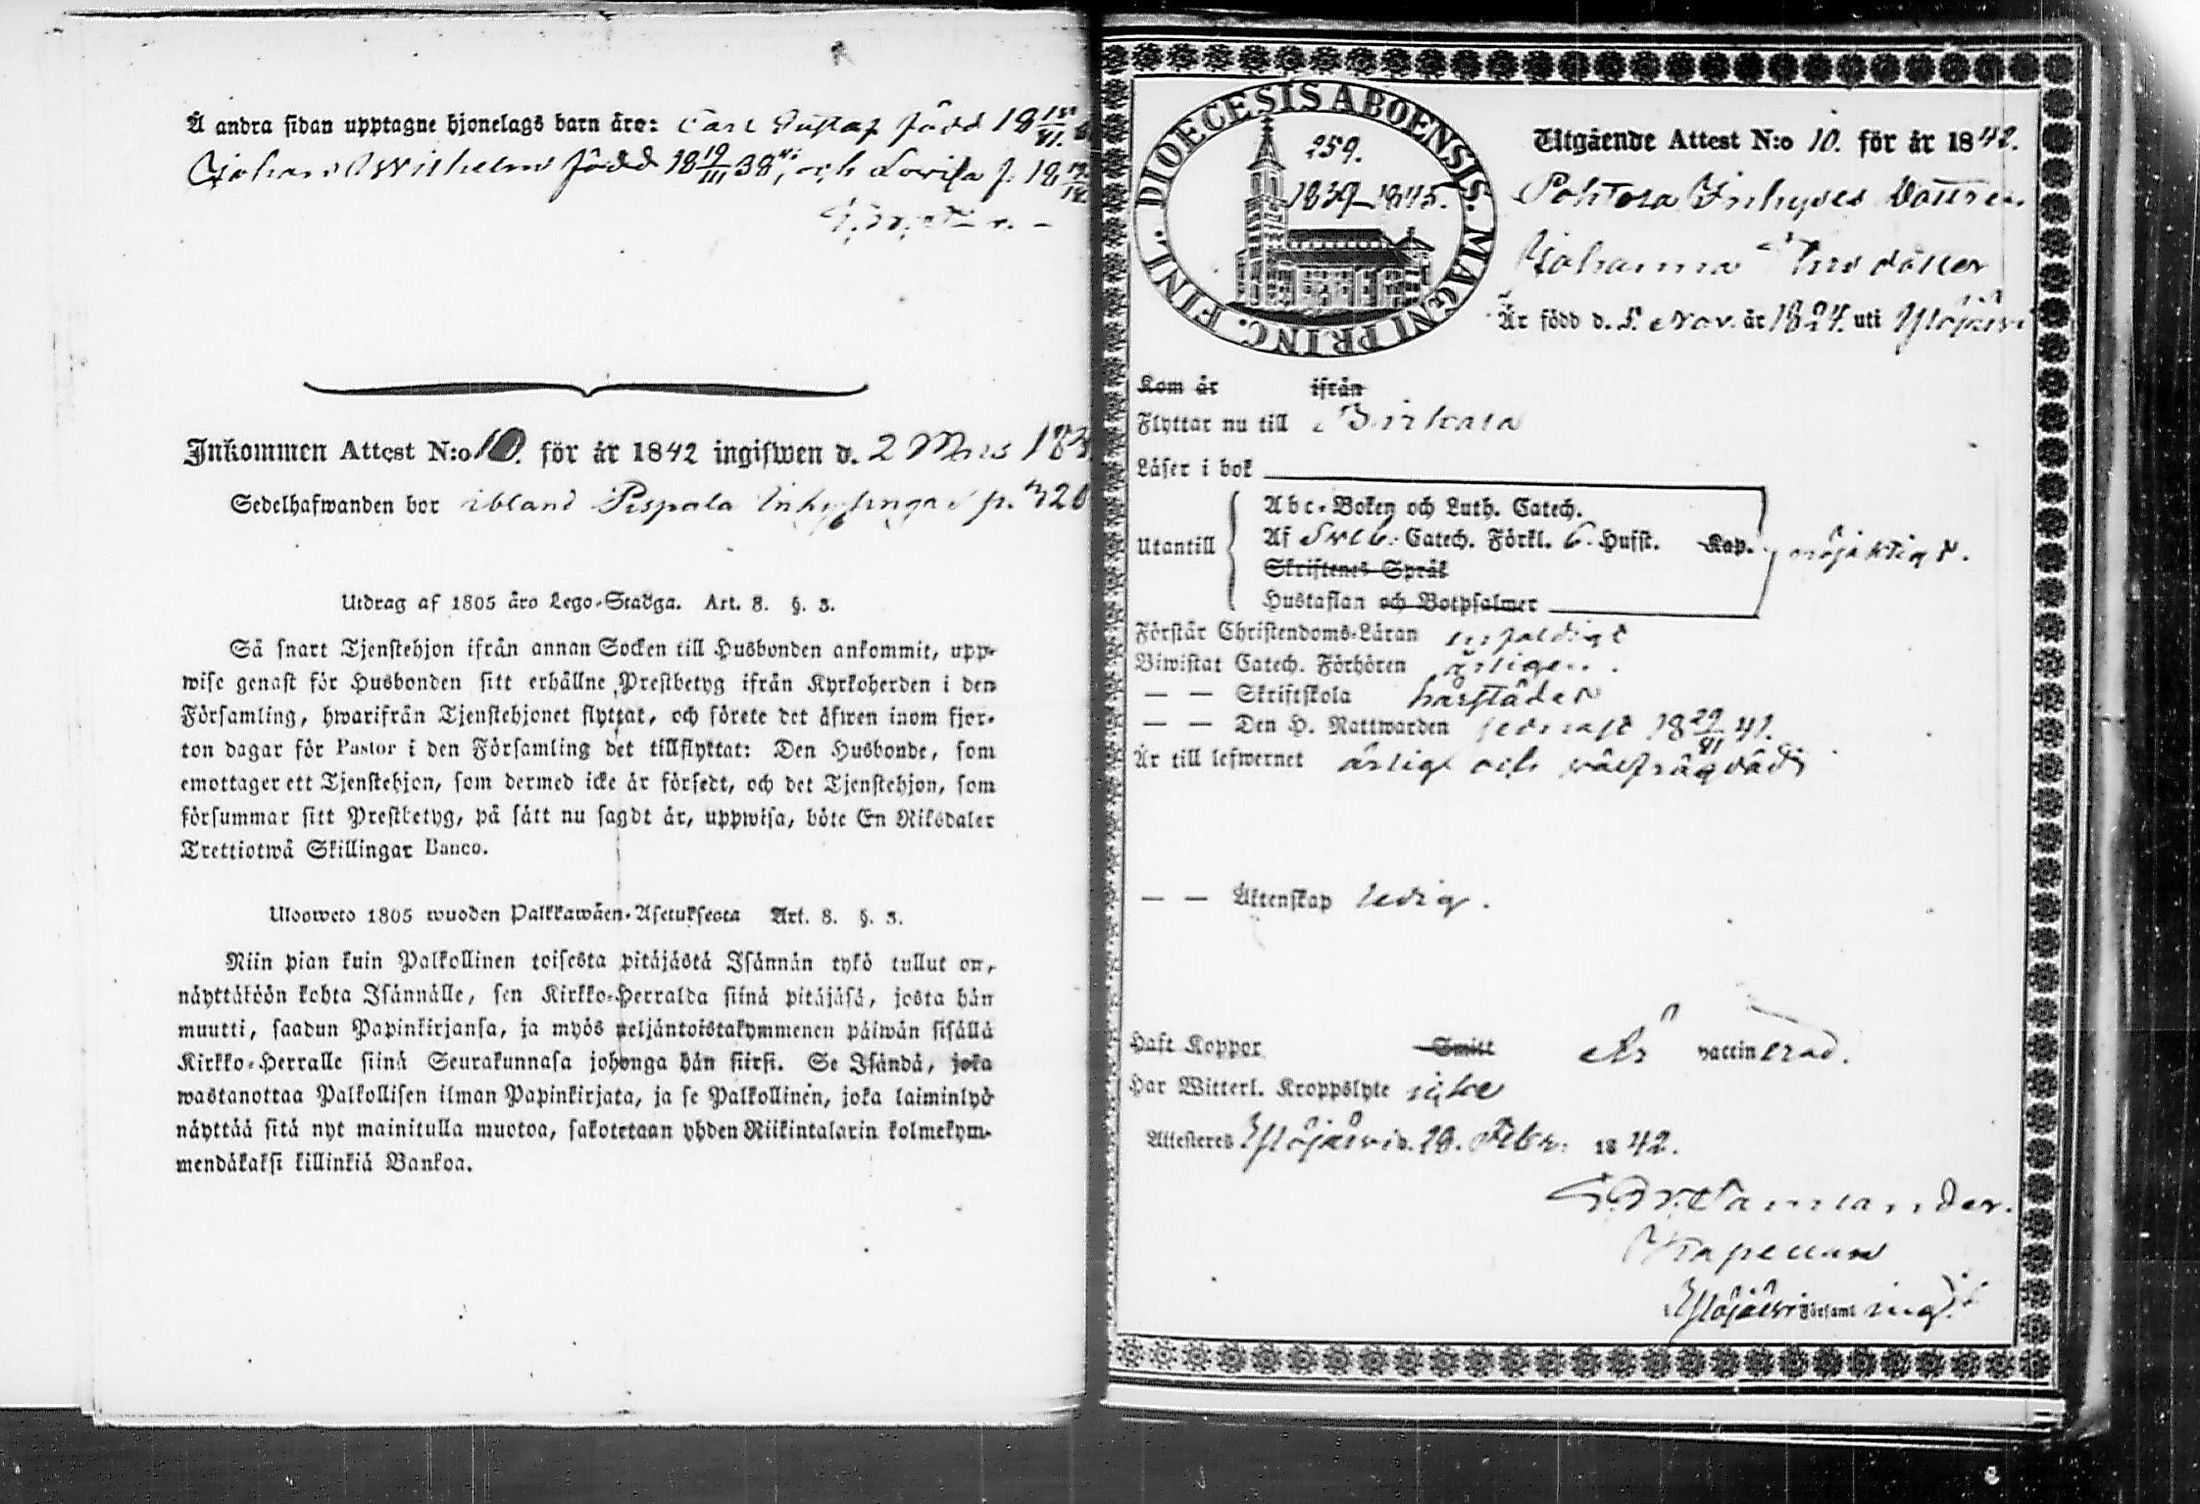 Å andra sidan upptagne hjonelags barn äro: Carl Gustaf född 18
Johan Wilhelm född 18 19/III 38, och Lovisa f. 18
Inkommen Attest N:o 10. för år 1842 ingifwen d. 2 Mars 18
Sedelhafwanden bor ibland Pispala Inhysingar p. 320
Utdrag af 1805 års Lego-Stadga. Art. 8. §. 3.
Så snart Tjenstehjon ifrån annan Socken till Husbonden ankommit, upp-
wise genast för Husbonden sitt erhållne Prestbetyg ifrån Kyrkoherden i den
Församling, hwarifrån Tjenstehjonet flyttat, och förete det äfwen inom fjor-
ton dagar för Pastor i den Församling det tillflyttat: Den Husbonde, som
emottager ett Tjenstehjon, som dermed icke är försedt, och det Tjenstehjon, som
försummar sitt Prestbetyg, på sätt nu sagdt är, uppwisa, böte En Riksdaler
Trettiotwå Skillingar Banco.
Ulosweto 1805 wuoden Palkkawäen-Asetuksesta Art. 8. §. 3.
Niin pian kuin Palkollinen toisesta pitäjästä Isännän tykö tullut on,
näyttäköön kohta Isännälle, sen Kirkko-Herralda siinä pitäjäsä, josta hän
muutti, saadun Papinkirjansa, ja myös neljäntoistakymmenen päiwän sisällä
Kirkko-Herralle siinä Seurakunnasa johonga hän siirsi. Se Isändä, joka
wastanottaa Palkollisen ilman Papinkirjata, ja se Palkollinen, joka laiminlyö
näyttää sitä nyt mainitulla muotoa, sakotetaan yhden Riikintalarin kolmekym-
mendäkaksi killinkiä Bankoa.
DIOECESIS ABOENSIS. MAGNI PRINC. FINL.
259.
1839–1845.
Utgående Attest N:o 10. för år 1842.
Pohtola Inhyses Dottren
Johanna dotter
Är född d. 5. Nov. år 1824. uti Ylöjärvi
Kom år ifrån
Flyttar nu till Birkala
Läser i bok
Utantill
Abc-Boken och Luth. Catech.
Af Sveb. Catech. Förkl. 6. Husst. Kap. nöjaktigt.
Skriftenes Språk
Hustaflan och Botpsalmer
Förstår Christendoms-Läran enfaldigt
Biwistat Catech. Förhören årligen.
— — Skriftskola
— — Den H. Nattwarden sednast 18 29/VI 41.
Är till lefwernet ärlig och välfrägdad
— — Äktenskap ledig.
Haft Koppor Smitt Är vaccinerad.
Har Witterl. Kroppslyte icke
Attesteres Ylöjärvi d. 28. Febr. 1842.
Kapellan
i Ylöjärvi Församl ing.